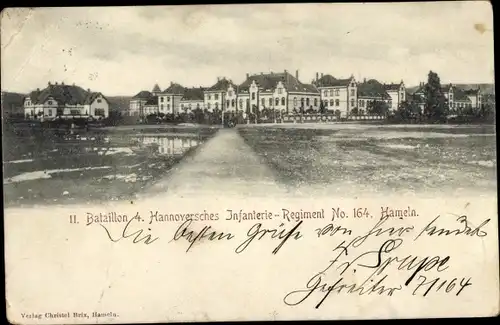 II. Bataillon 4. Hannoversches Infanterie-Regiment No. 164. Hameln.
Die besten Grüße von hier sendet
Gefreiter 7/164
Verlag Christel Brix, Hameln.